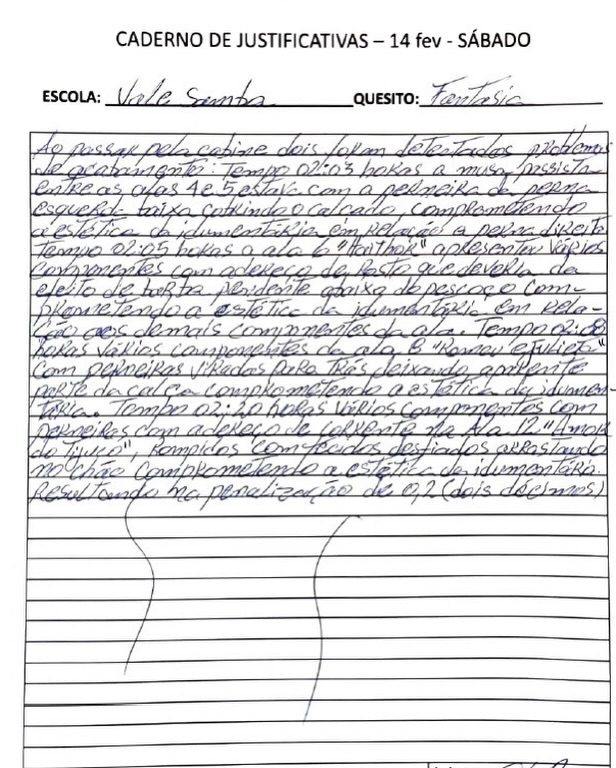 CADERNO DE JUSTIFICATIVAS – 14 fev - SÁBADO
ESCOLA: Vale Samba QUESITO: Fantasia
Ao passar pela cabine dois foram detectados problemas
de acabamento: Tempo 02:03 horas a musa passista
entre as alas 4 e 5 estava com a perneira da perna
esquerda baixa cobrindo o calçado, comprometendo
a estética da idumentária em relação a perna direita
Tempo 02:05 horas a ala 6 "Hathor" apresentou vários
componentes com adereço de rosto que deveria da
efeito de barba pendente abaixo do pescoço com-
prometendo a estética da idumentária em rela-
ção aos demais componentes da ala. Tempo 02:08
horas vários componentes da ala 8 "Romeu e Julieta"
com perneiras viradas para trás deixando aparente
parte da calça comprometendo a estética da idumen-
tária. Tempo 02:20 horas vários componentes com
perneiras com adereço de corrente na Ala 12 "Amor
do Tijuco", rompidos com tecidos desfiados arrastando
no chão comprometendo a estética da idumentária.
Resultando na penalização de 0,2 (dois décimos)